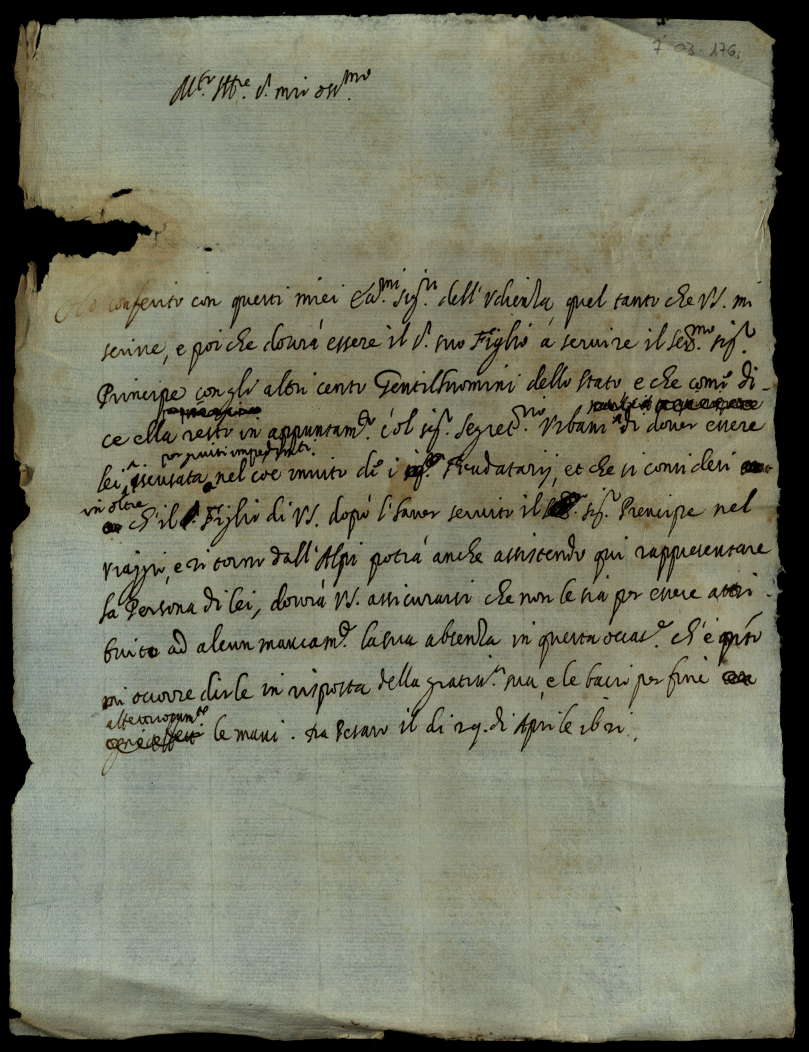 7 03-176
Mto. Illre. s.r mio oss.mo
Ho conferito con questi miei Ecc.mi sig.ri dell'Udienza quel tanto che VS. mi
scrive, e poi che dovrà essere il s.r suo Figlio à servire il ser.mo sig.r
Principe con gli altri cento Gentilhuomini dello stato e che come di-
ce ella restò in appuntam.to col sig.r Segret.rio Urbani di dover essere
per giusti impedimenti
lei scusata nel invito de i Feudatarij, et che si consideri
in oltre
ch'il Figlio di VS. dopò l'haver servito il sig.r Prencipe nel
viaggio, e ritorno dall'Alpi potrà anche assistendo qui rappresentare
la Persona di lei, dovrà VS. assicurarsi che non le sia per essere attri-
buito ad alcun mancam.to la sua absenza in questa occas.e ch'è q.to
mi occorre dirle in risposta della gratiss.a sua, e le bacio per fine
le mani. Da Pesaro il di 29. di Aprile 1621.